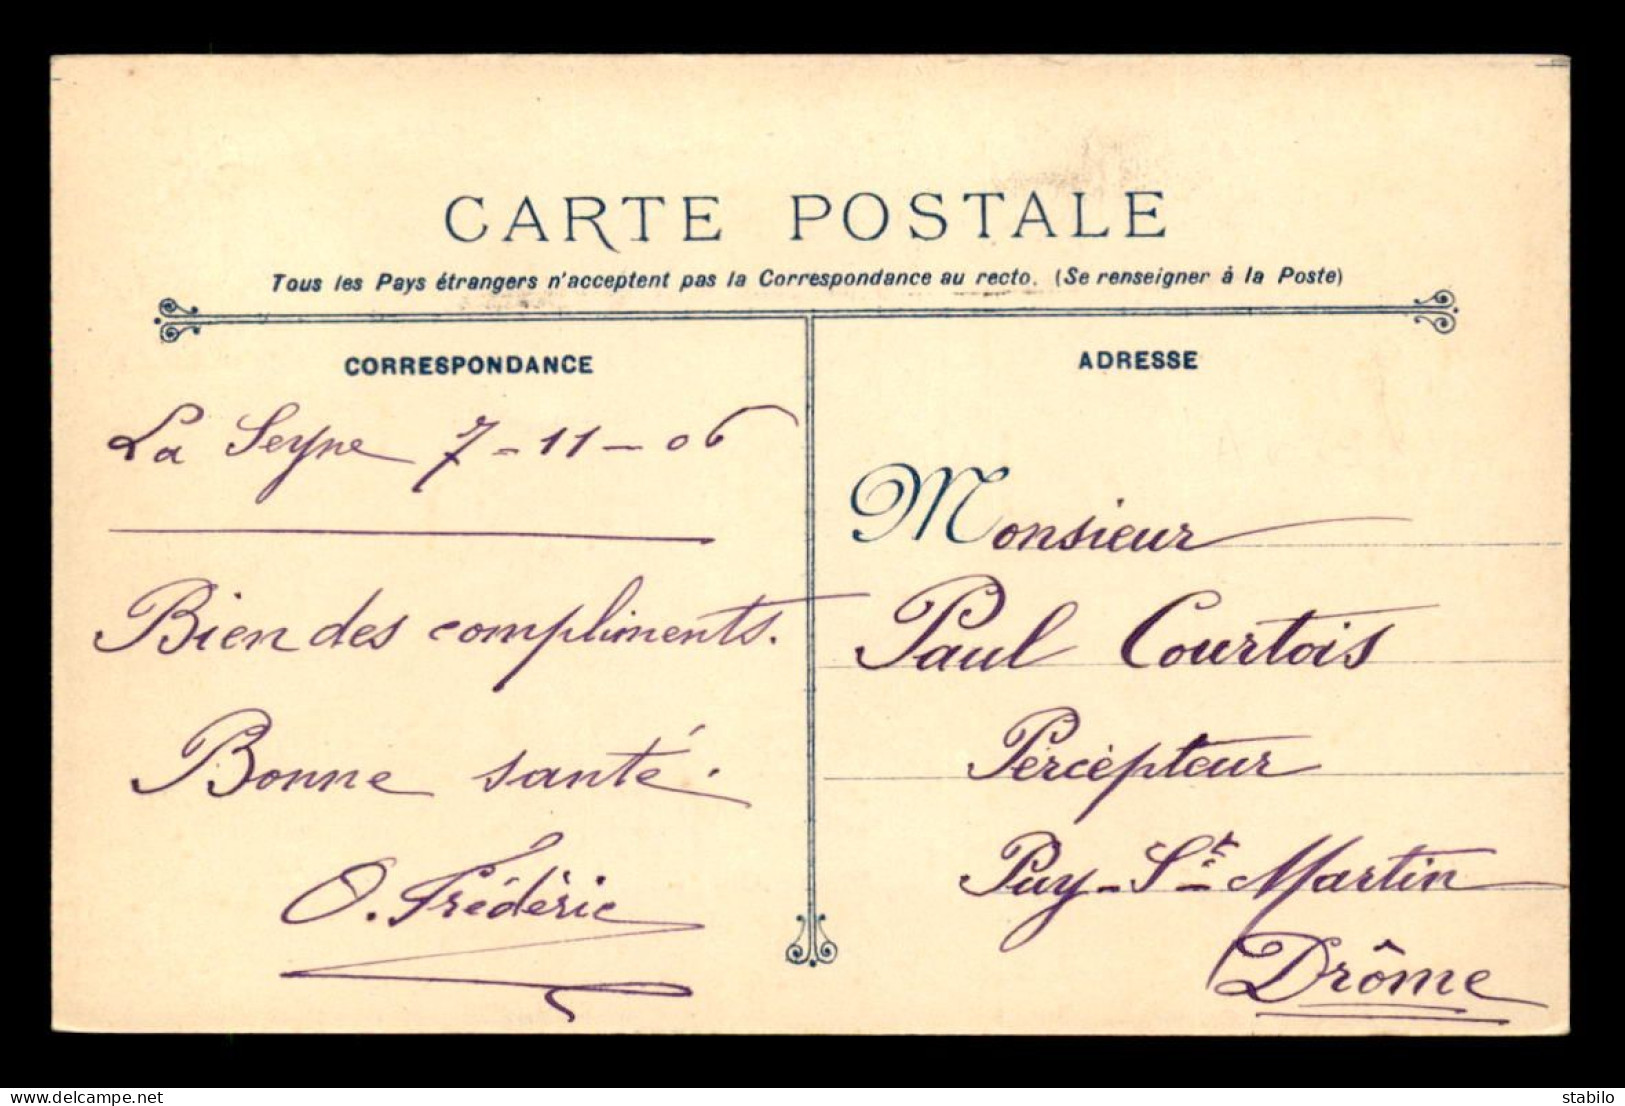 CARTE POSTALE
Tous les Pays étrangers n'acceptent pas la Correspondance au recto. (Se renseigner à la Poste)
CORRESPONDANCE
La Seyne 7-11-06
Bien des compliments.
Bonne santé.
O. Frédéric
ADRESSE
Monsieur
Paul Courtois
Percepteur
Puy-St-Martin
Drôme
www.delcampe.net
stabilo